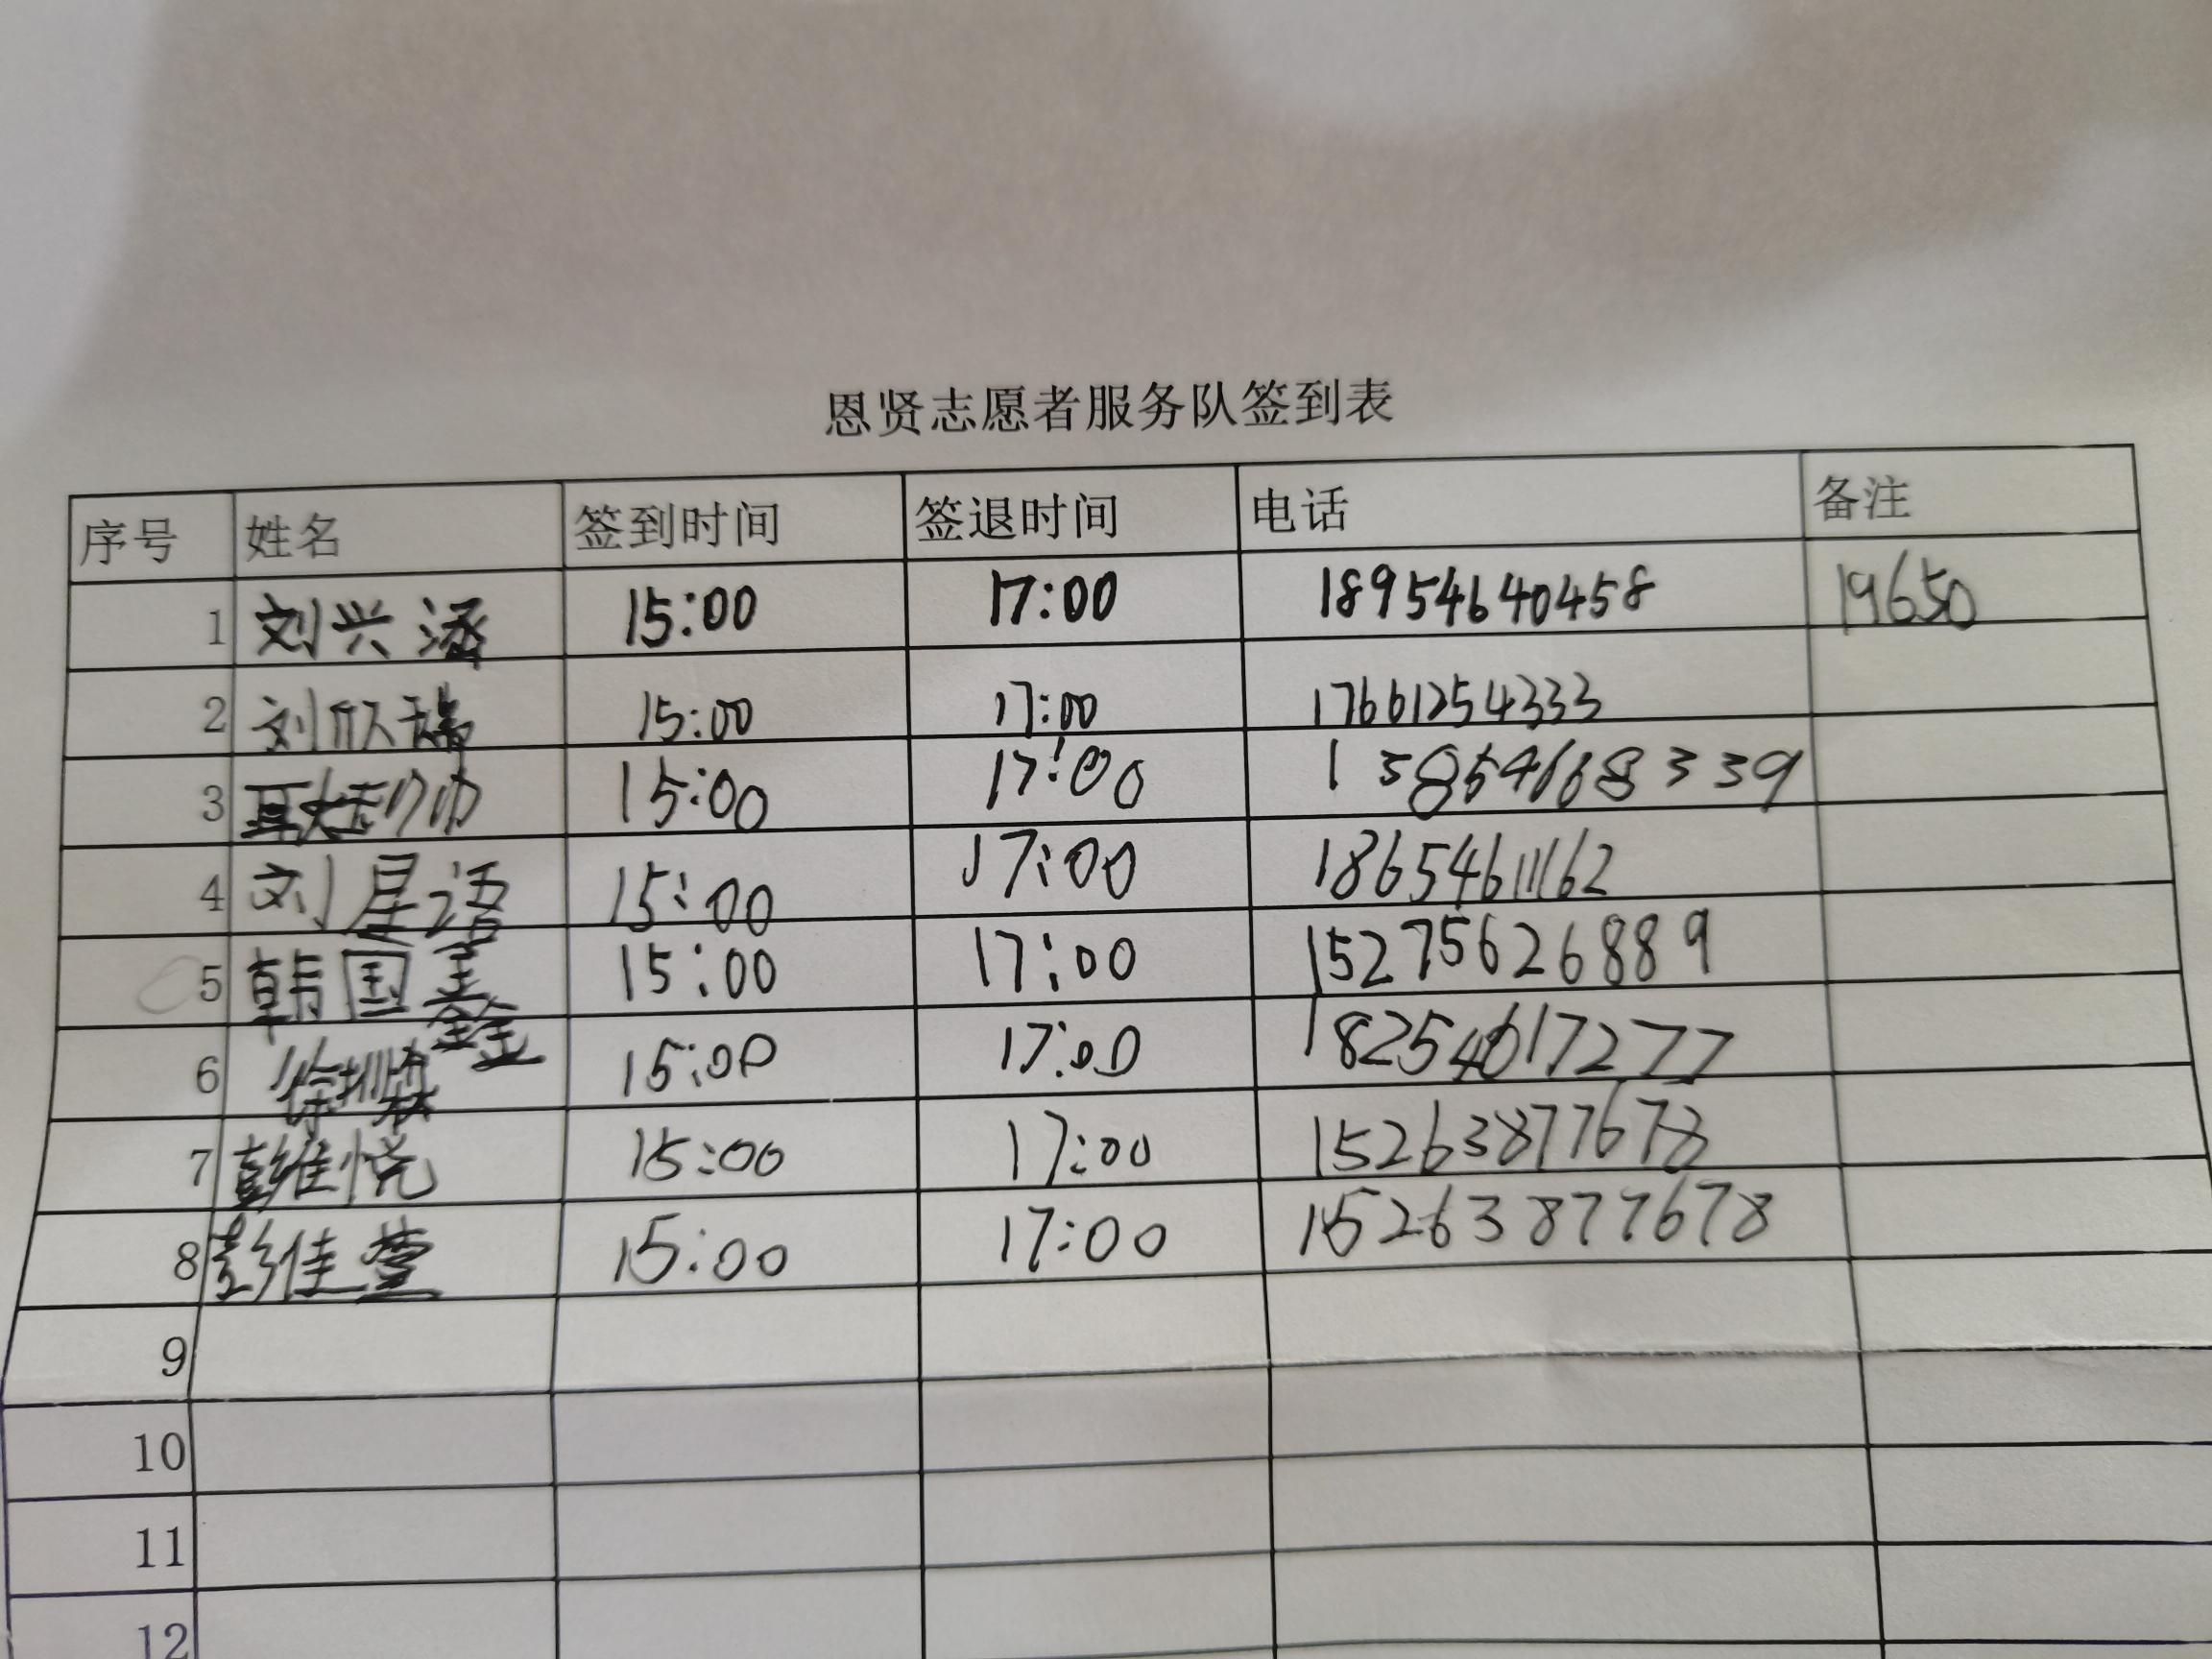 恩贤志愿者服务队签到表
序号 姓名 签到时间 签退时间 电话 备注
1 刘兴涵 15:00 17:00 18954640458 19650
2 刘欣瑞 15:00 17:00 17661254333
3 15:00 17:00 13854668339
4 刘星语 15:00 17:00 18654611162
5 韩国鑫 15:00 17:00 15275626889
6 15:00 17:00 18254617277
7 彭维悦 15:00 17:00 15263877678
8 彭佳萱 15:00 17:00 15263877678
9
10
11
12